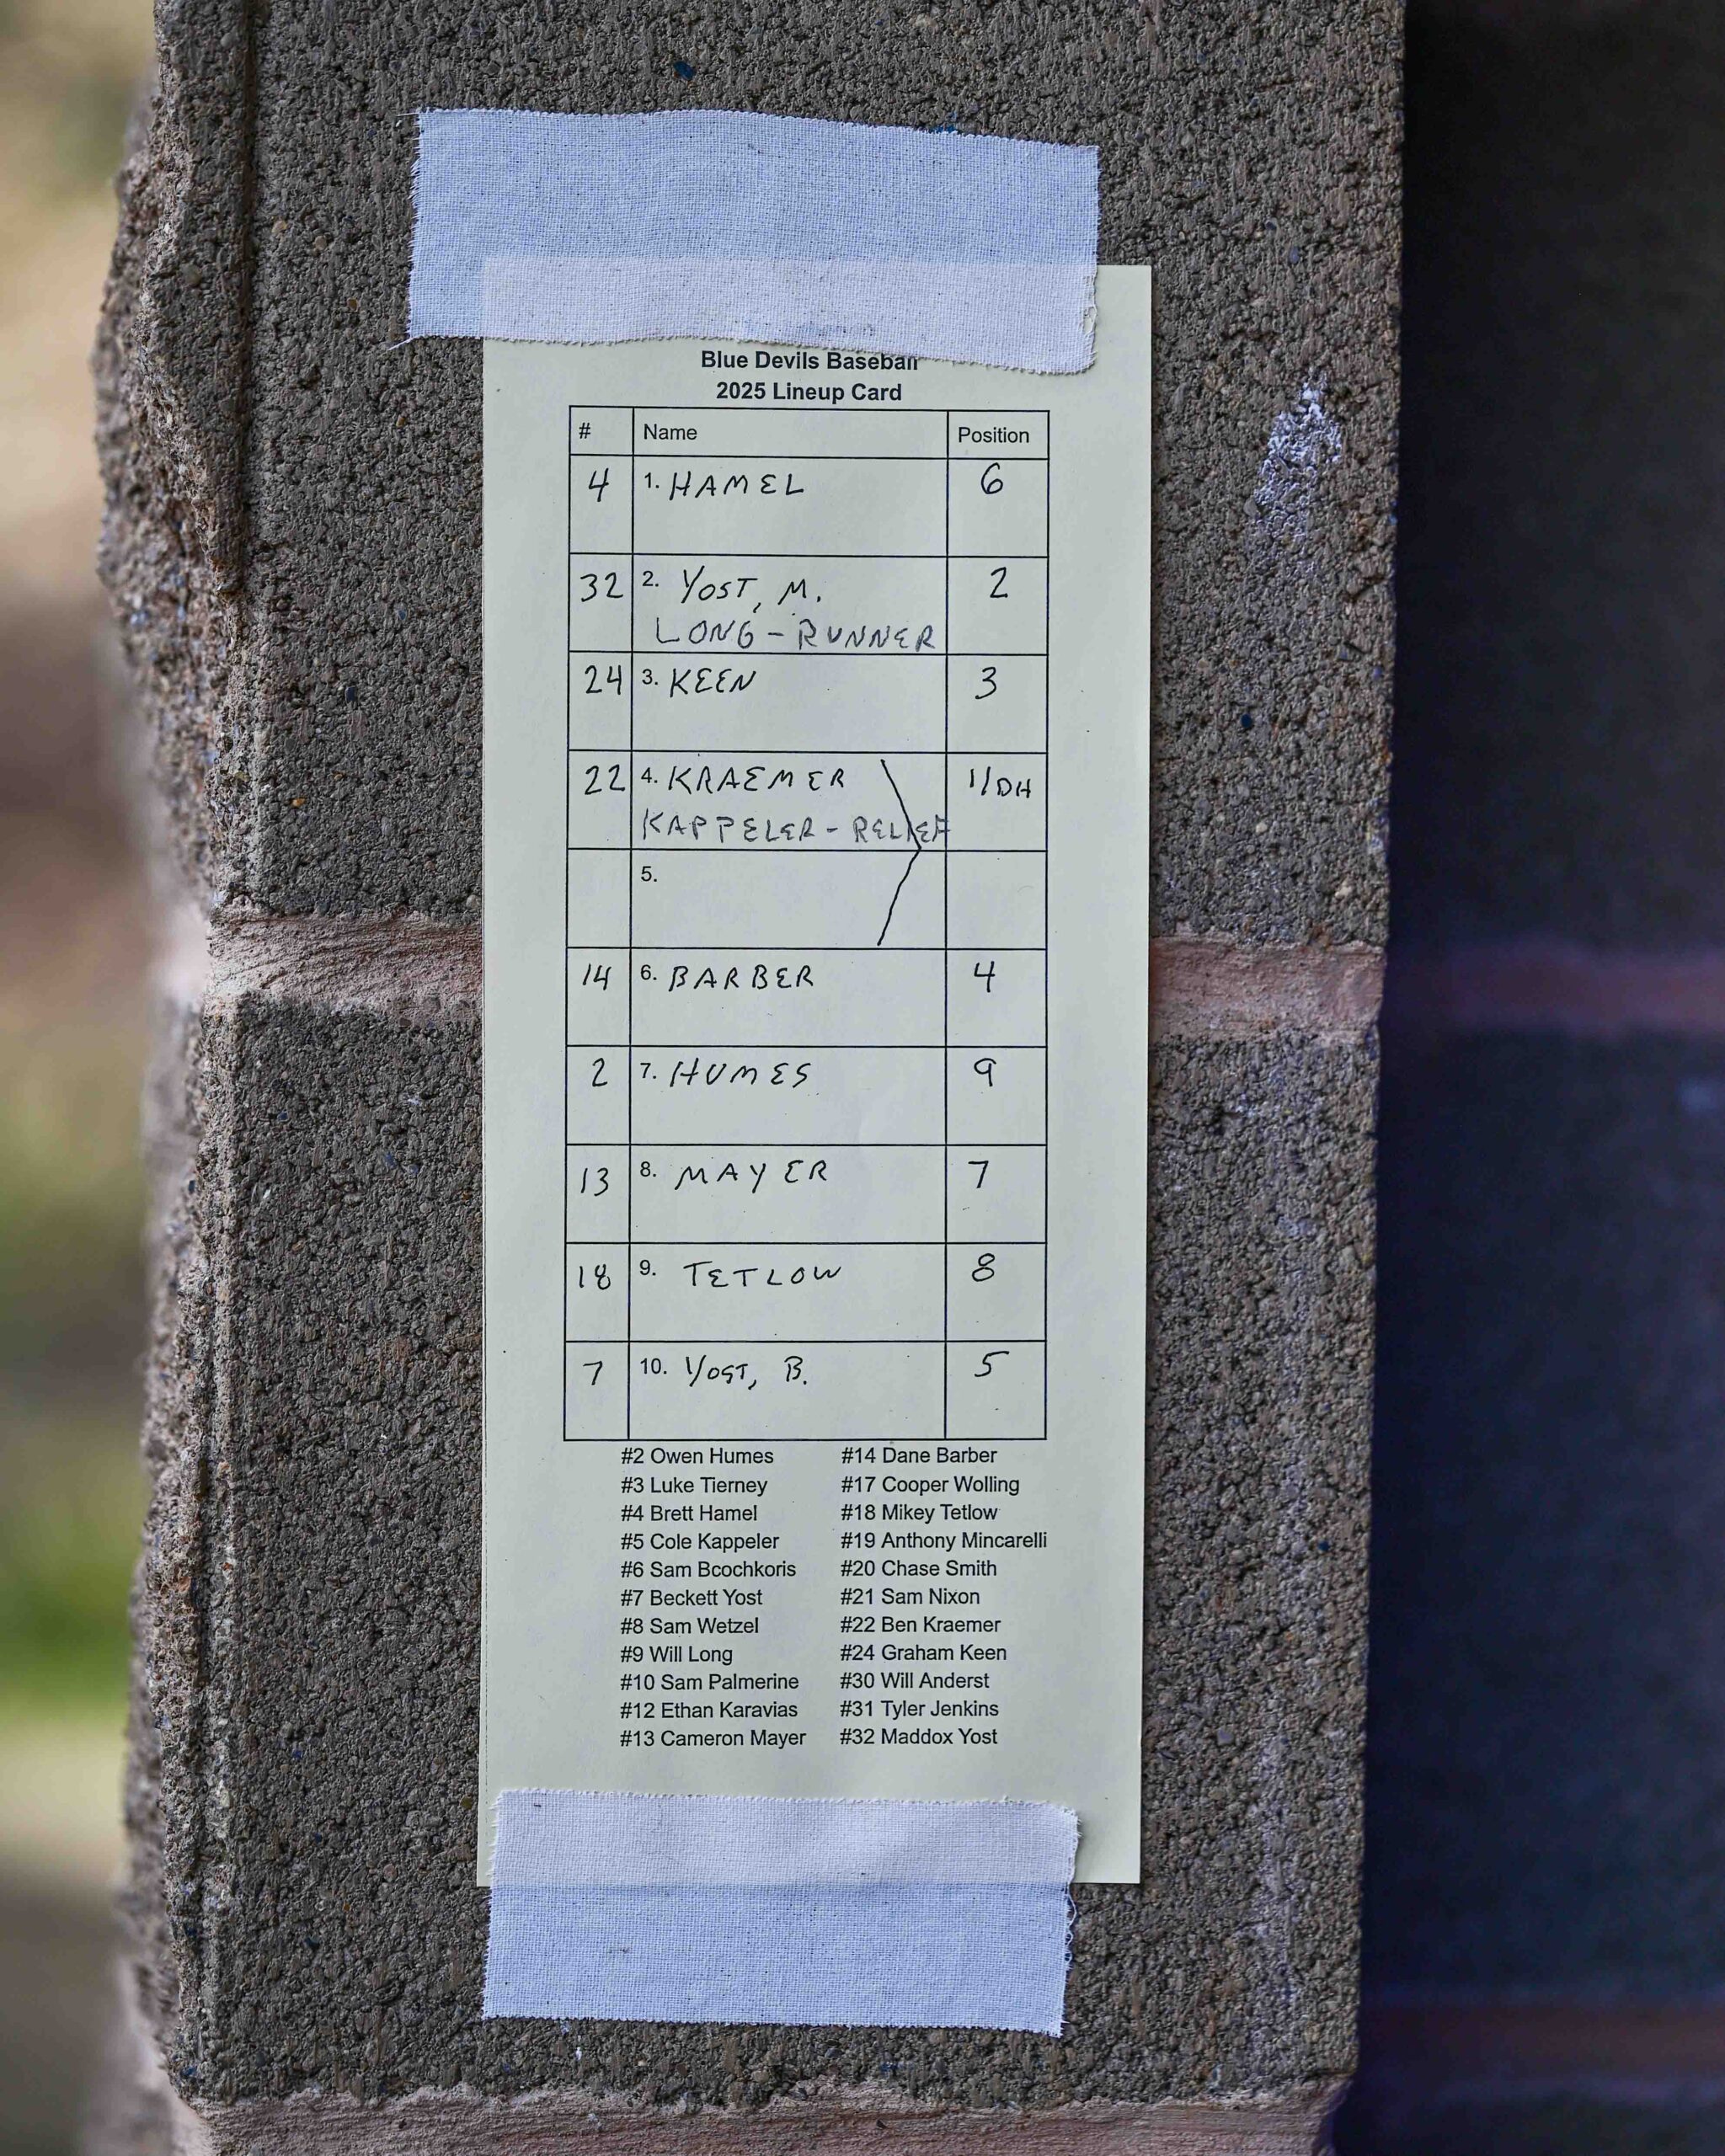 Blue Devils Baseball
2025 Lineup Card
# Name Position
4 1. HAMEL 6
32 2. YOST, M. 2
LONG - RUNNER
24 3. KEEN 3
22 4. KRAEMER 1/DH
KAPPELER - RELIEF
5.
14 6. BARBER 4
2 7. HUMES 9
13 8. MAYER 7
18 9. TETLOW 8
7 10. YOST, B. 5
#2 Owen Humes #14 Dane Barber
#3 Luke Tierney #17 Cooper Wolling
#4 Brett Hamel #18 Mikey Tetlow
#5 Cole Kappeler #19 Anthony Mincarelli
#6 Sam Bcochkoris #20 Chase Smith
#7 Beckett Yost #21 Sam Nixon
#8 Sam Wetzel #22 Ben Kraemer
#9 Will Long #24 Graham Keen
#10 Sam Palmerine #30 Will Anderst
#12 Ethan Karavias #31 Tyler Jenkins
#13 Cameron Mayer #32 Maddox Yost